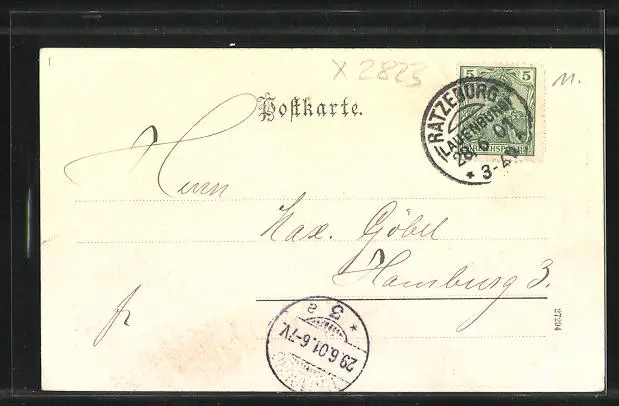 X 2823
M.
Postkarte.
5 5
REICHSPOST
RATZEBURG
(LAUENBURG)
28.6.01
* 3-4N *
Herrn
Max. Göbel
Hamburg 3.
fr
27294
* 3 a
29.6.01.6-7V.